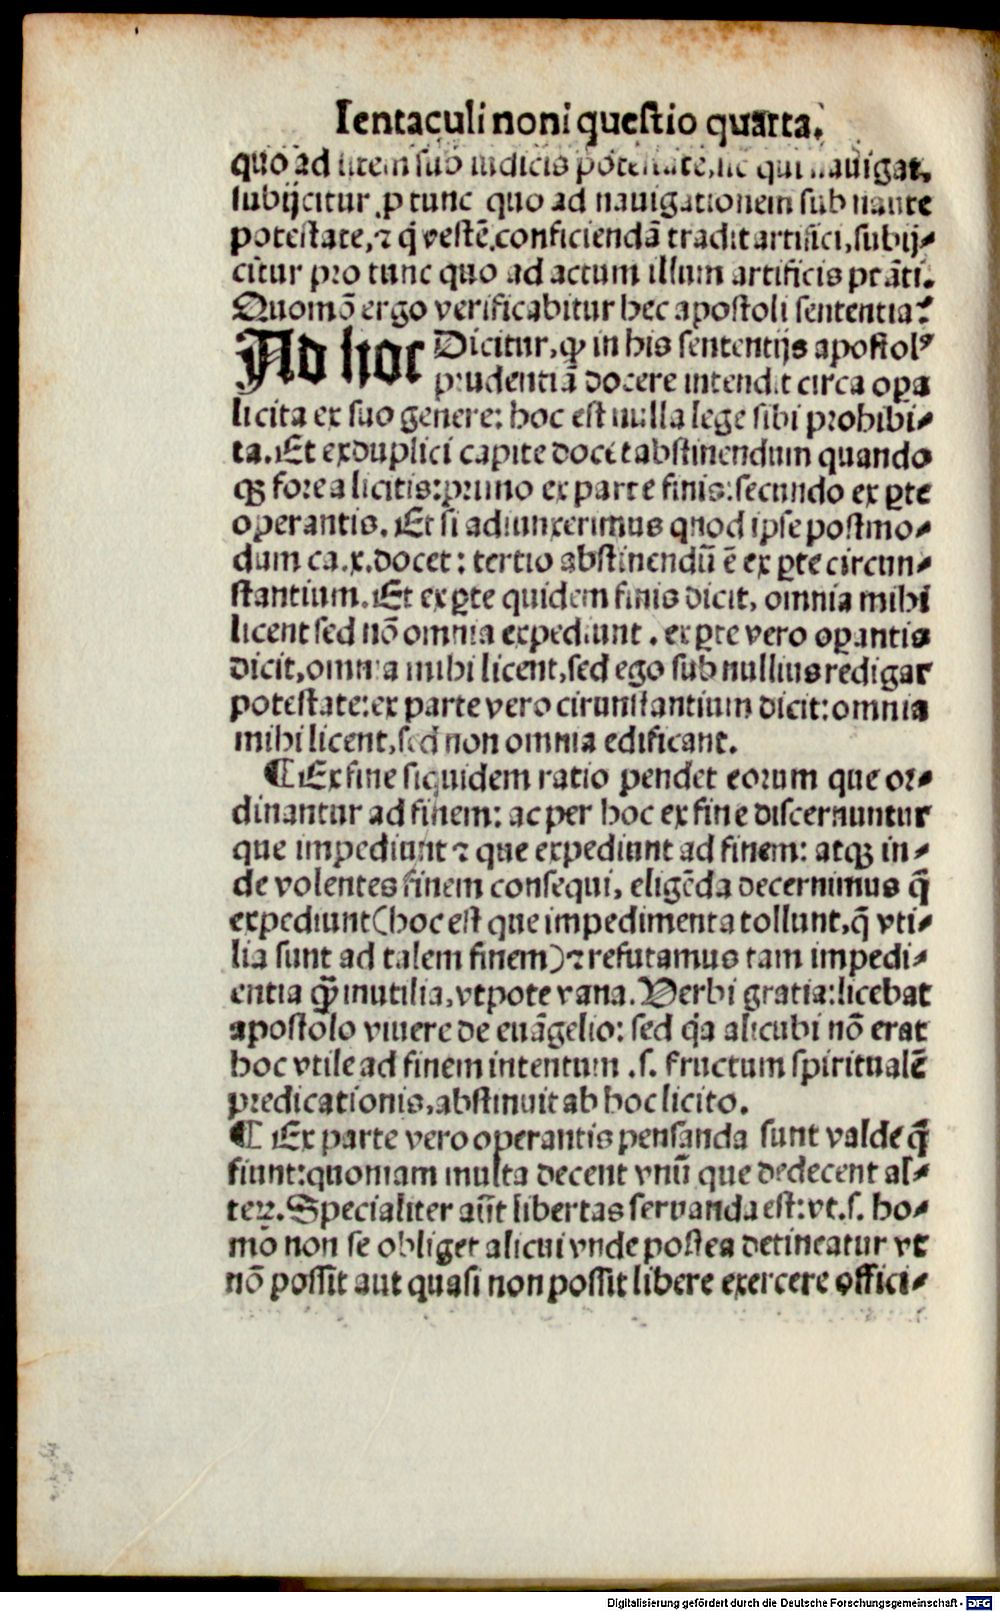 Ientaculi noni questio quarta.
quo ad litem sub iudicis potestate, ⁊ qui nauigat,
subijcitur ꝓ tunc quo ad nauigationem sub naute
potestate, ⁊ q̃ vestẽ conficiendã tradit artifici, subij⸗
citur pro tunc quo ad actum illum artificis ptãti.
Quomõ ergo verificabitur hec apostoli sententia?
Ad hoc Dicitur, ꝙ in his sententijs apostolꝰ
prudentiã docere intendit circa oꝑa
licita ex suo genere: hoc est nulla lege sibi prohibi⸗
ta. Et ex duplici capite docet abstinendum quando
qꝫ fore a licitis: primo ex parte finis: secundo ex ꝑte
operantis. Et si adiunxerimus quod ipse postmo⸗
dum ca. x. docet: tertio abstinendũ ẽ ex ꝑte circun⸗
stantium. Et ex ꝑte quidem finis dicit, omnia mihi
licent sed nõ omnia expediunt. ex ꝑte vero oꝑantis
dicit, omnia mihi licent, sed ego sub nullius redigar
potestate: ex parte vero cirunstantium dicit: omnia
mihi licent, sed non omnia edificant.
¶ Ex fine siquidem ratio pendet eorum que or⸗
dinantur ad finem: ac per hoc ex fine discernuntur
que impediunt ⁊ que expediunt ad finem: atqꝫ in⸗
de volentes finem consequi, eligẽda decernimus q̃
expediunt (hoc est que impedimenta tollunt, q̃ vti⸗
lia sunt ad talem finem) ⁊ refutamus tam impedi⸗
entia ꝙ̃ inutilia, vtpote vana. Verbi gratia: licebat
apostolo viuere de euãgelio: sed q̃a alicubi nõ erat
hoc vtile ad finem intentum .s. fructum spiritualẽ
predicationis, abstinuit ab hoc licito.
¶ Ex parte vero operantis pensanda sunt valde q̃
fiunt: quoniam multa decent vnũ que dedecent al⸗
teꝝ. Specialiter aũt libertas seruanda est: vt .s. ho⸗
mo non se obliget alicui vnde postea detineatur vt
nõ possit aut quasi non possit libere exercere offici⸗
Digitalisierung gefördert durch die Deutsche Forschungsgemeinschaft - DFG